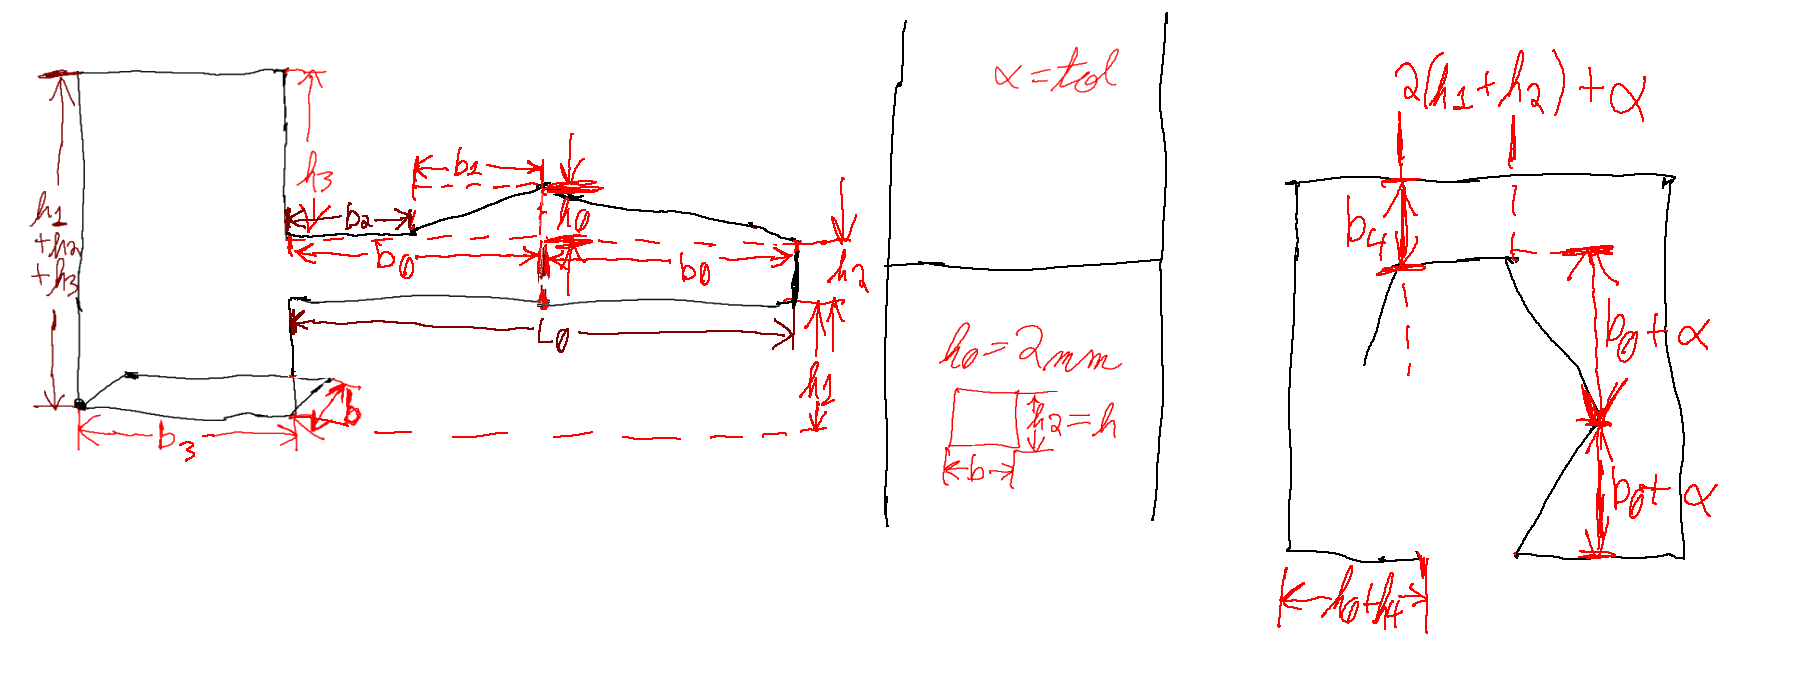 h1
+h2
+h3
h3
b1
b2
h0
b0
b0
h2
L0
h1
b3
b
α = tol
h0 = 2mm
h2 = h
b
2(h1+h2)+α
b4
b0+α
b0+α
h0+h4